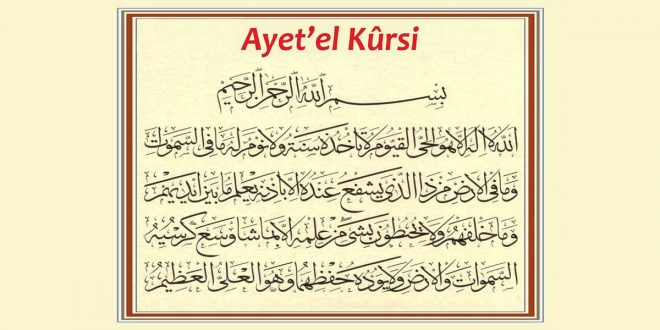 Ayet’el Kûrsi
بِسْمِ اللّٰهِ الرَّحْمٰنِ الرَّحِيمِ
اَللّٰهُ لَا اِلٰهَ اِلَّا هُوَ الْحَىُّ الْقَيُّومُ لَا تَأْخُذُهُ سِنَةٌ وَلَا نَوْمٌ لَهُ مَا فِى السَّمٰوَاتِ
وَمَا فِى الْاَرْضِ مَنْ ذَا الَّذِى يَشْفَعُ عِنْدَهُ اِلَّا بِاِذْنِهِ يَعْلَمُ مَا بَيْنَ اَيْدِيهِمْ
وَمَا خَلْفَهُمْ وَلَا يُحِيطُونَ بِشَىْءٍ مِنْ عِلْمِهِ اِلَّا بِمَا شَاءَ وَسِعَ كُرْسِيُّهُ
السَّمٰوَاتِ وَالْاَرْضَ وَلَا يَؤُدُهُ حِفْظُهُمَا وَهُوَ الْعَلِىُّ الْعَظِيمُ